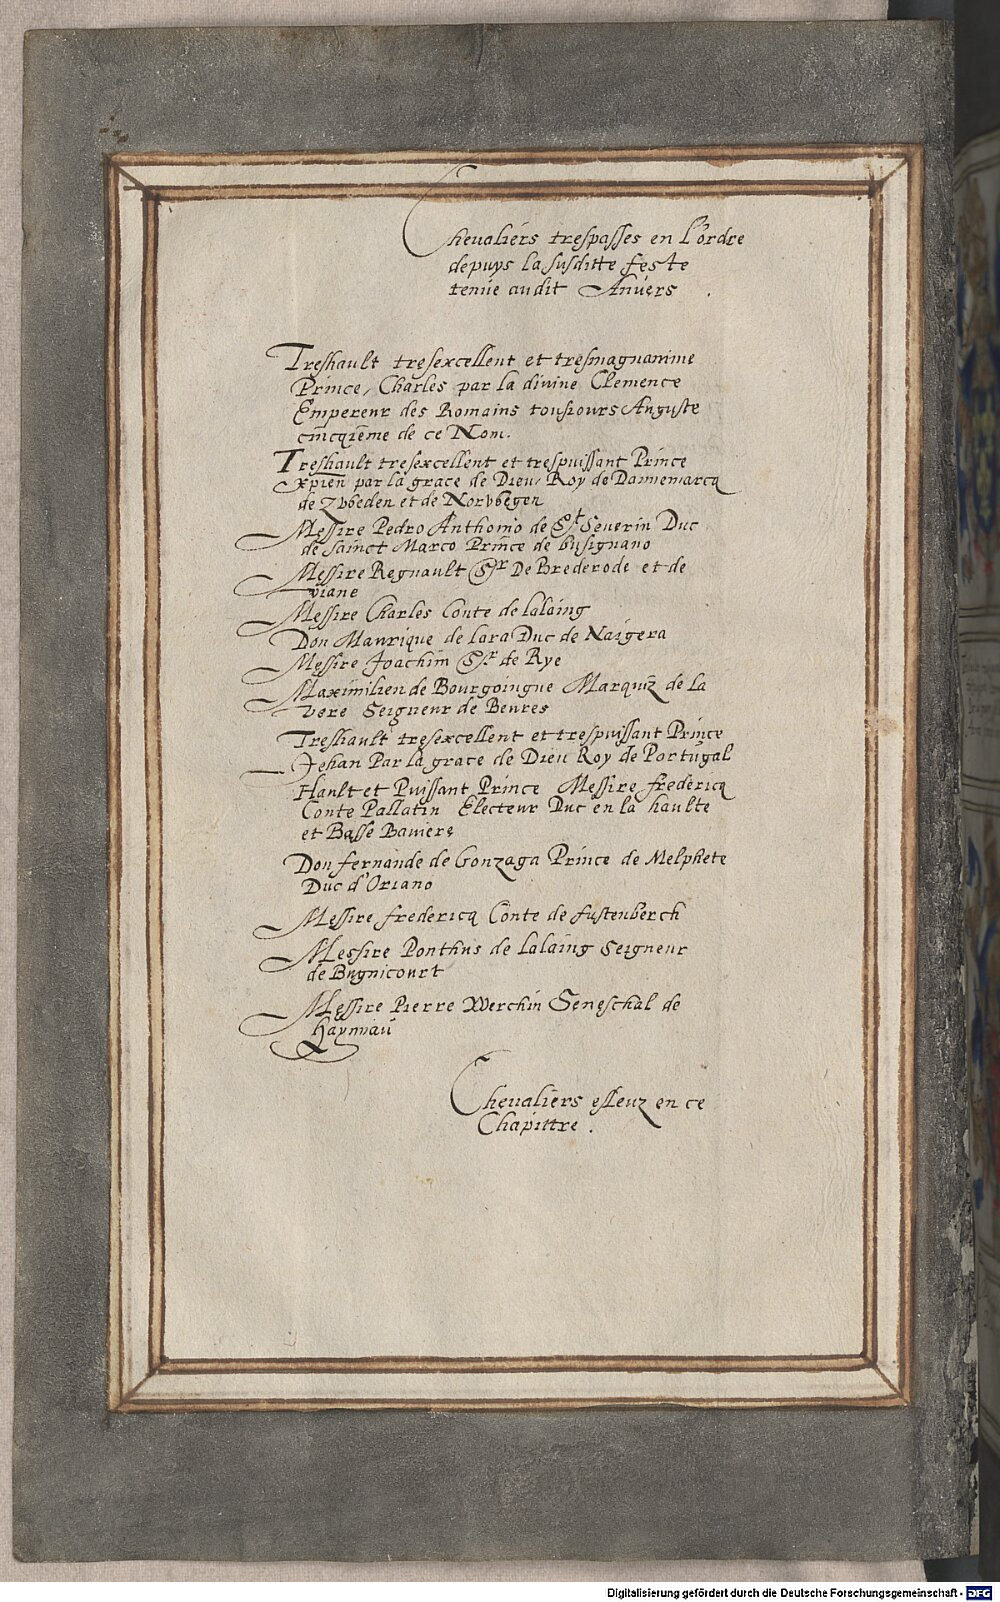 Chevaliers trespasses en l'ordre
depuys la susditte feste
tenue audit Anvers .
Treshault tresexcellent et tresmagnanime
Prince, Charles par la divine Clemence
Empereur des Romains tousiours Auguste
cincqieme de ce Nom.
Treshault tresexcellent et trespuissant Prince
Xpien par la grace de Dieu Roy de Dannemarcq
de Zvveden et de Norvvegen
Messire Pedro Anthonio de St Severin Duc
de sainct Marco Prince de busignano
Messire Regnault Sr De Brederode et de
viane
Messire Charles Conte de lalaing
Don Manrique de lara Duc de Naigera
Messire Joachim Sr de Rye
Maximilien de Bourgoingne Marquiz de la
vere Seigneur de Beures
Treshault tresexcellent et trespuissant Prince
Jehan Par la grace de Dieu Roy de Portugal
Hault et Puissant Prince Messire fredericq
Conte Pallatin Electeur Duc en la haulte
et Basse Baviere
Don fernande de Gonzaga Prince de Melphete
Duc d'Oriano
Messire frederica Conte de fustenberch
Messire Ponthus de lalaing Seigneur
de Bugnicourt
Messire Pierre Werchin Seneschal de
Haynnau
Chevaliers esleuz en ce
Chapittre .
Digitalisierung gefördert durch die Deutsche Forschungsgemeinschaft - DFG